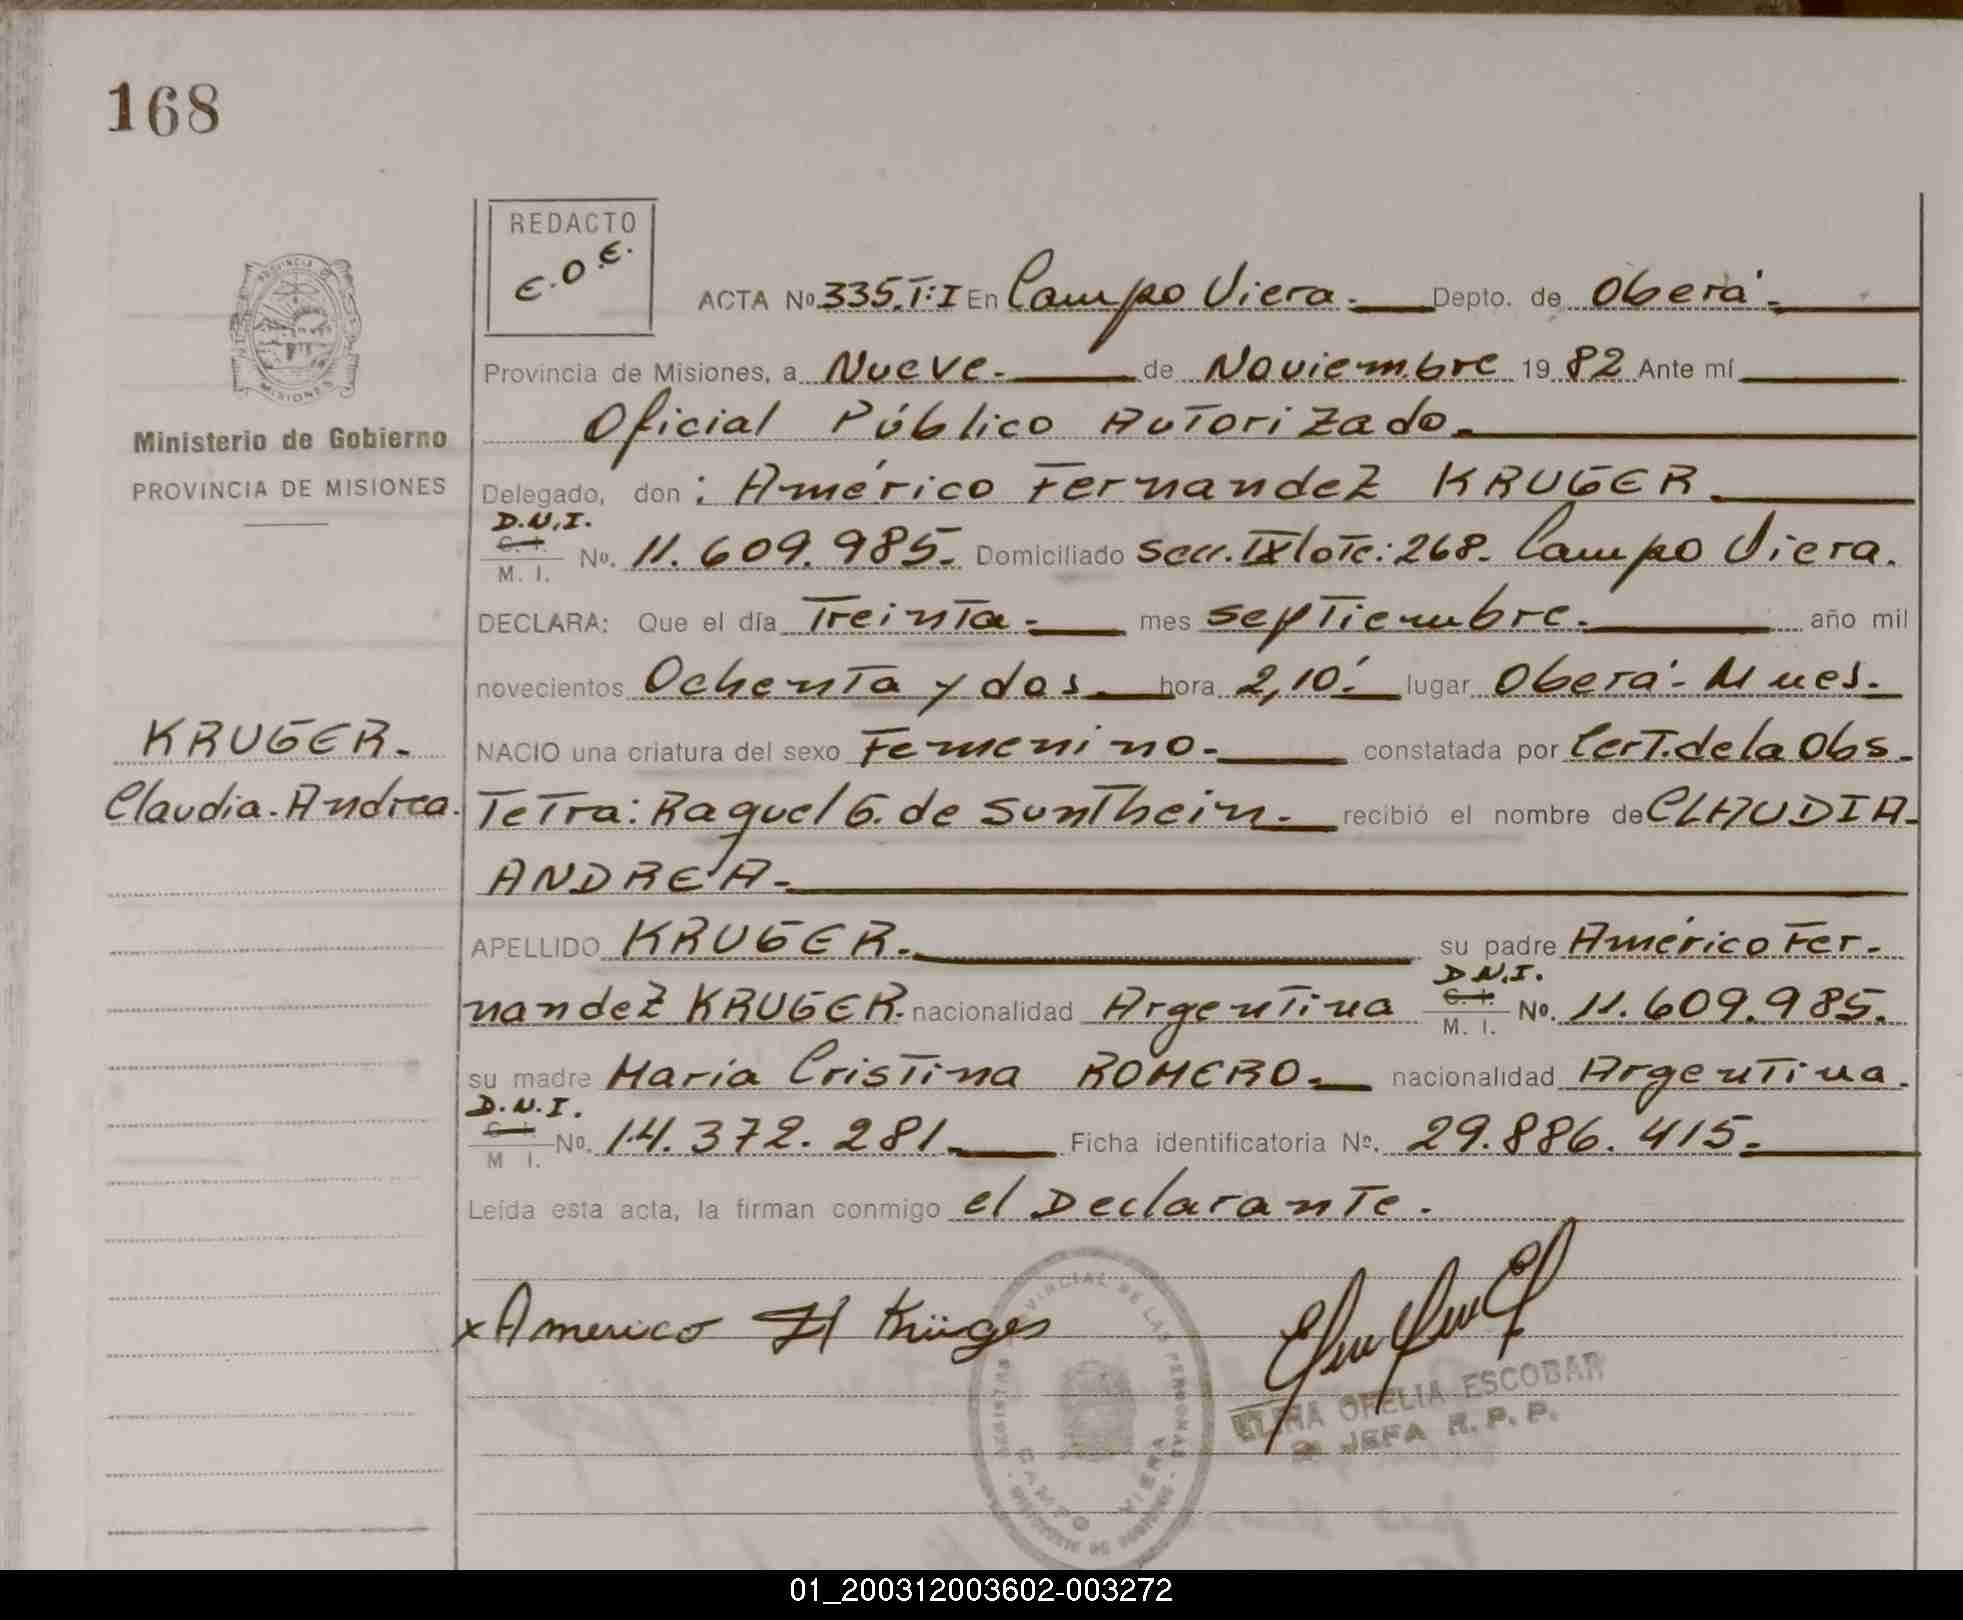 168
REDACTO
E.O.E.
PROVINCIA DE
MISIONES
Ministerio de Gobierno
PROVINCIA DE MISIONES
ACTA No. 335. T: I En Campo Viera. Depto. de Oberá.
Provincia de Misiones, a Nueve. de Noviembre 19 82 Ante mí
Oficial Público Autorizado.
Delegado, don: Américo Fernandez KRUGER
D.N.I.
C. I.
M. I. No. 11.609.985. Domiciliado Secc. IX lote: 268. Campo Viera.
DECLARA: Que el día Treinta. mes septiembre. año mil
novecientos Ochenta y dos hora 2,10'. lugar Oberá. Mnes.
NACIO una criatura del sexo Femenino. constatada por Cert. de la Obs-
tetra: Raquel G. de Sunthein. recibió el nombre de CLAUDIA-
ANDREA.
KRUGER.
Claudia. Andrea.
APELLIDO KRUGER. su padre Américo Fer-
nandez KRUGER. nacionalidad Argentina D.N.I. C. I. M. I. No. 11.609.985.
su madre María Cristina ROMERO. nacionalidad Argentina.
D.N.I.
C. I.
M I. No. 14.372.281. Ficha identificatoria No. 29.886.415.
Leída esta acta, la firman conmigo el Declarante.
x Americo Krüger
PROVINCIAL DE LAS PERSONAS
CAMPO VIERA
OFELIA ESCOBAR
JEFA R.P.P.
01_200312003602-003272